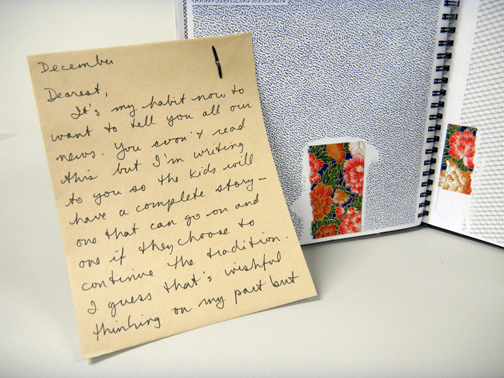 December
Dearest,
It's my habit now to
want to tell you all our
news. You won't read
this but I'm writing
to you so the kids will
have a complete story-
one that can go on and
one if they choose to
continue the tradition.
I guess that's wishful
thinking on my part but